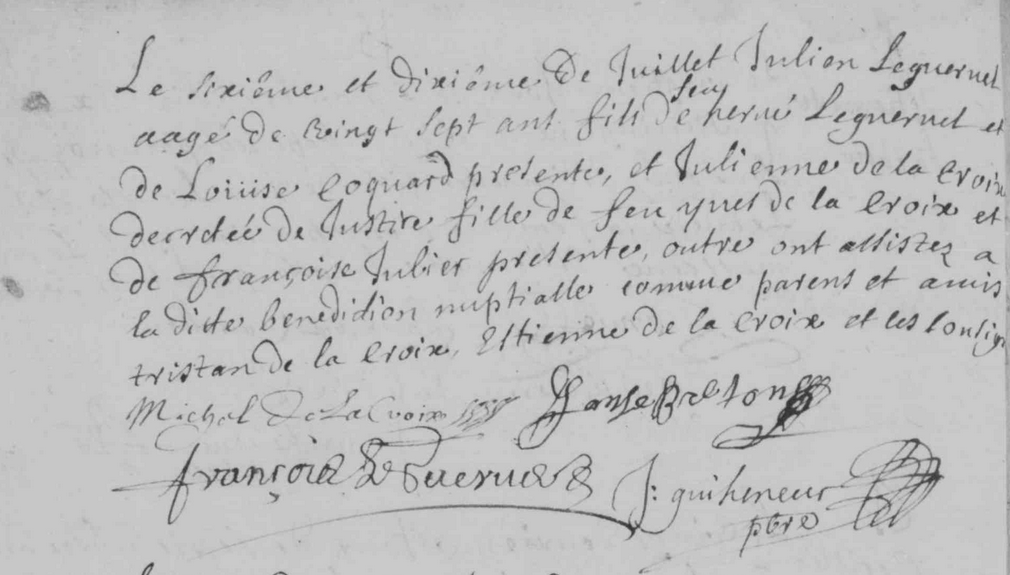 Le sixiême et dixiême de Juillet Julien Leguernel
aagé de vingt sept ans fils de feu hervé Leguernel et
de Loüise Coquard presente, et Julienne de la Croix
decretée de Justice fille de feu yves de la Croix et
de françoise Julier presente, outre ont assistez a
la ditte benediction nuptialle comme parens et amis
tristan de la Croix, Estienne de la Croix et les sousig
Michel De La Croix
françois Le Guernel
J: guiheneuc
pbre